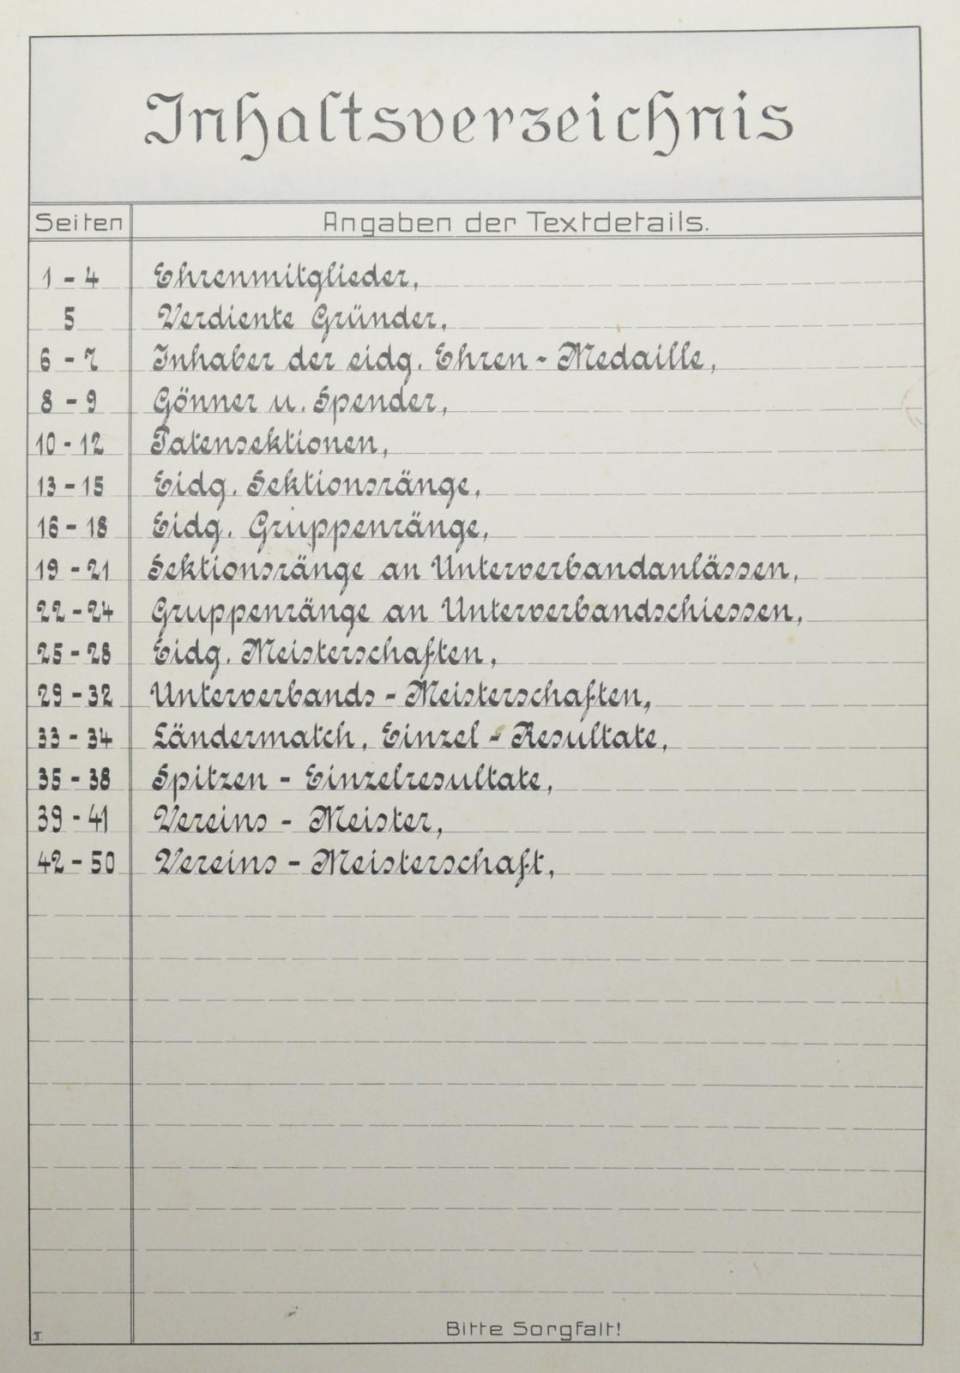 Inhaltsverzeichnis
Seiten Angaben der Textdetails.
1 - 4 Ehrenmitglieder,
5 Verdiente Gründer,
6 - 7 Inhaber der eidg. Ehren - Medaille,
8 - 9 Gönner u. Spender,
10 - 12 Patensektionen,
13 - 15 Eidg. Sektionsränge,
16 - 18 Eidg. Gruppenränge,
19 - 21 Sektionsränge an Unterverbandanlässen,
22 - 24 Gruppenränge an Unterverbandschiessen,
25 - 28 Eidg. Meisterschaften,
29 - 32 Unterverbands - Meisterschaften,
33 - 34 Ländermatch, Einzel - Resultate,
35 - 38 Spitzen - Einzelresultate,
39 - 41 Vereins - Meister,
42 - 50 Vereins - Meisterschaft,
Bitte Sorgfalt!